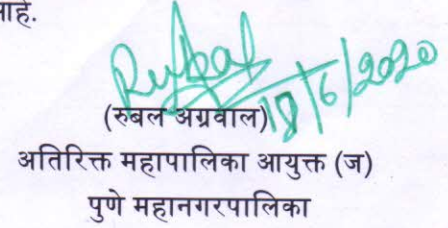 आहे.
Rubal
18/6/2020
(रुबल अग्रवाल)
अतिरिक्त महापालिका आयुक्त (ज)
पुणे महानगरपालिका